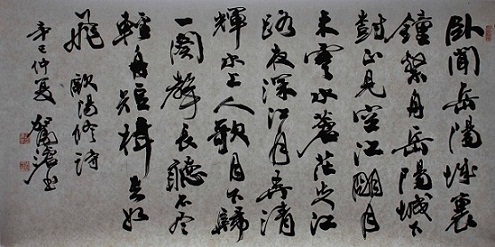 臥聞岳陽城裏
鐘繫舟岳陽城下
樹正見空江明月
来雲水蒼茫失江
路夜深江月弄清
輝水上人歌月下歸
一闋聲長聽不盡
輕舟短楫去如
飛 歐陽修詩
辛巳仲夏 書